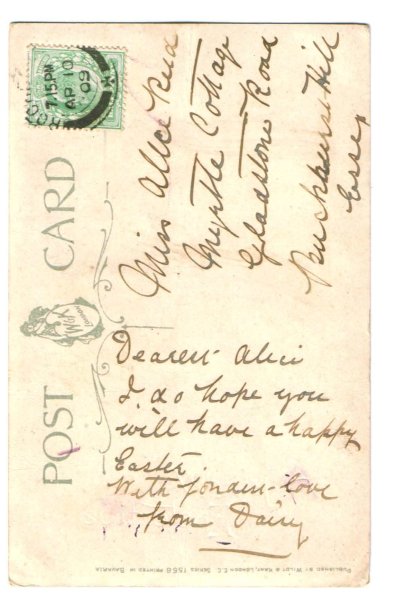 POST CARD
W&K
London
7.15 PM
AP 10
09
Miss Alice Reid
Myrtle Cottage
Gladstone Road
Buckhurst Hill
Essex
Dearest Alice
I do hope you
will have a happy
Easter.
With fondest love
from Daisy
PUBLISHED BY WILDT & KRAY, LONDON E.C. SERIES 1558 PRINTED IN BAVARIA